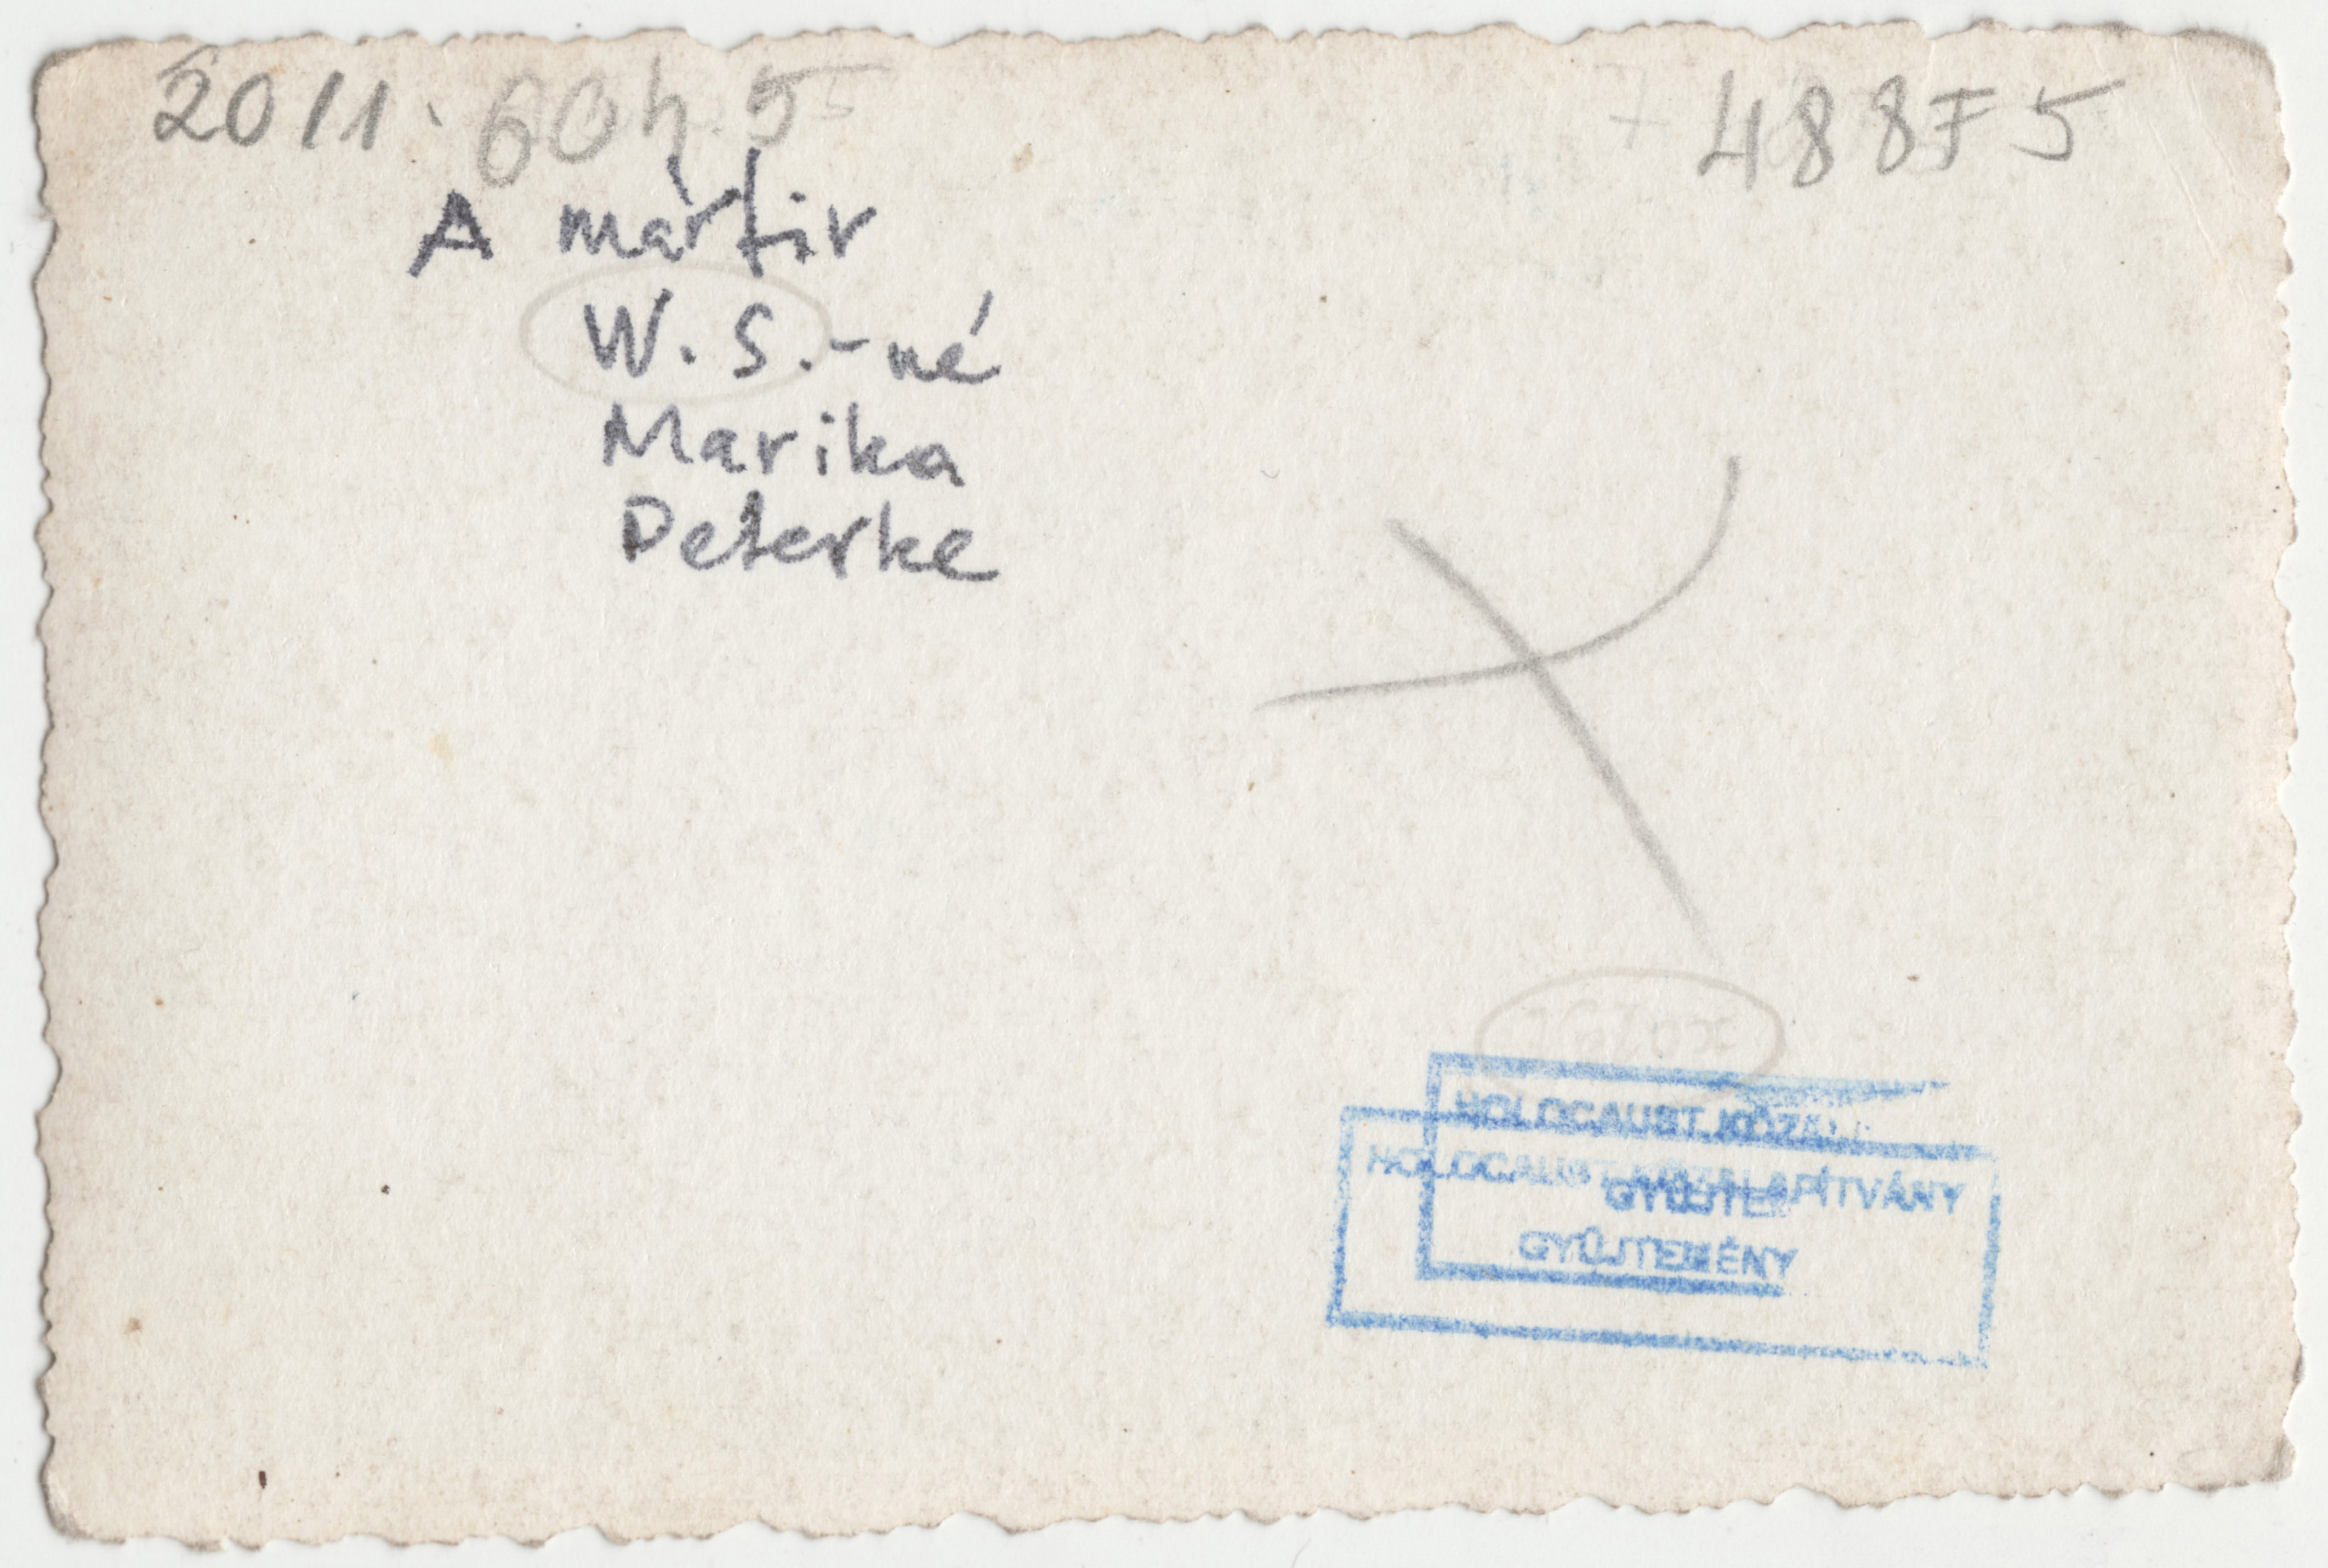 2011. 604.5
48875
A mártir
W. S.-né
Marika
Peterke
HOLOCAUST KÖZAL
HOLOCAUST KÖZALAPÍTVÁNY
GYŰJTEM
GYŰJTEMÉNY